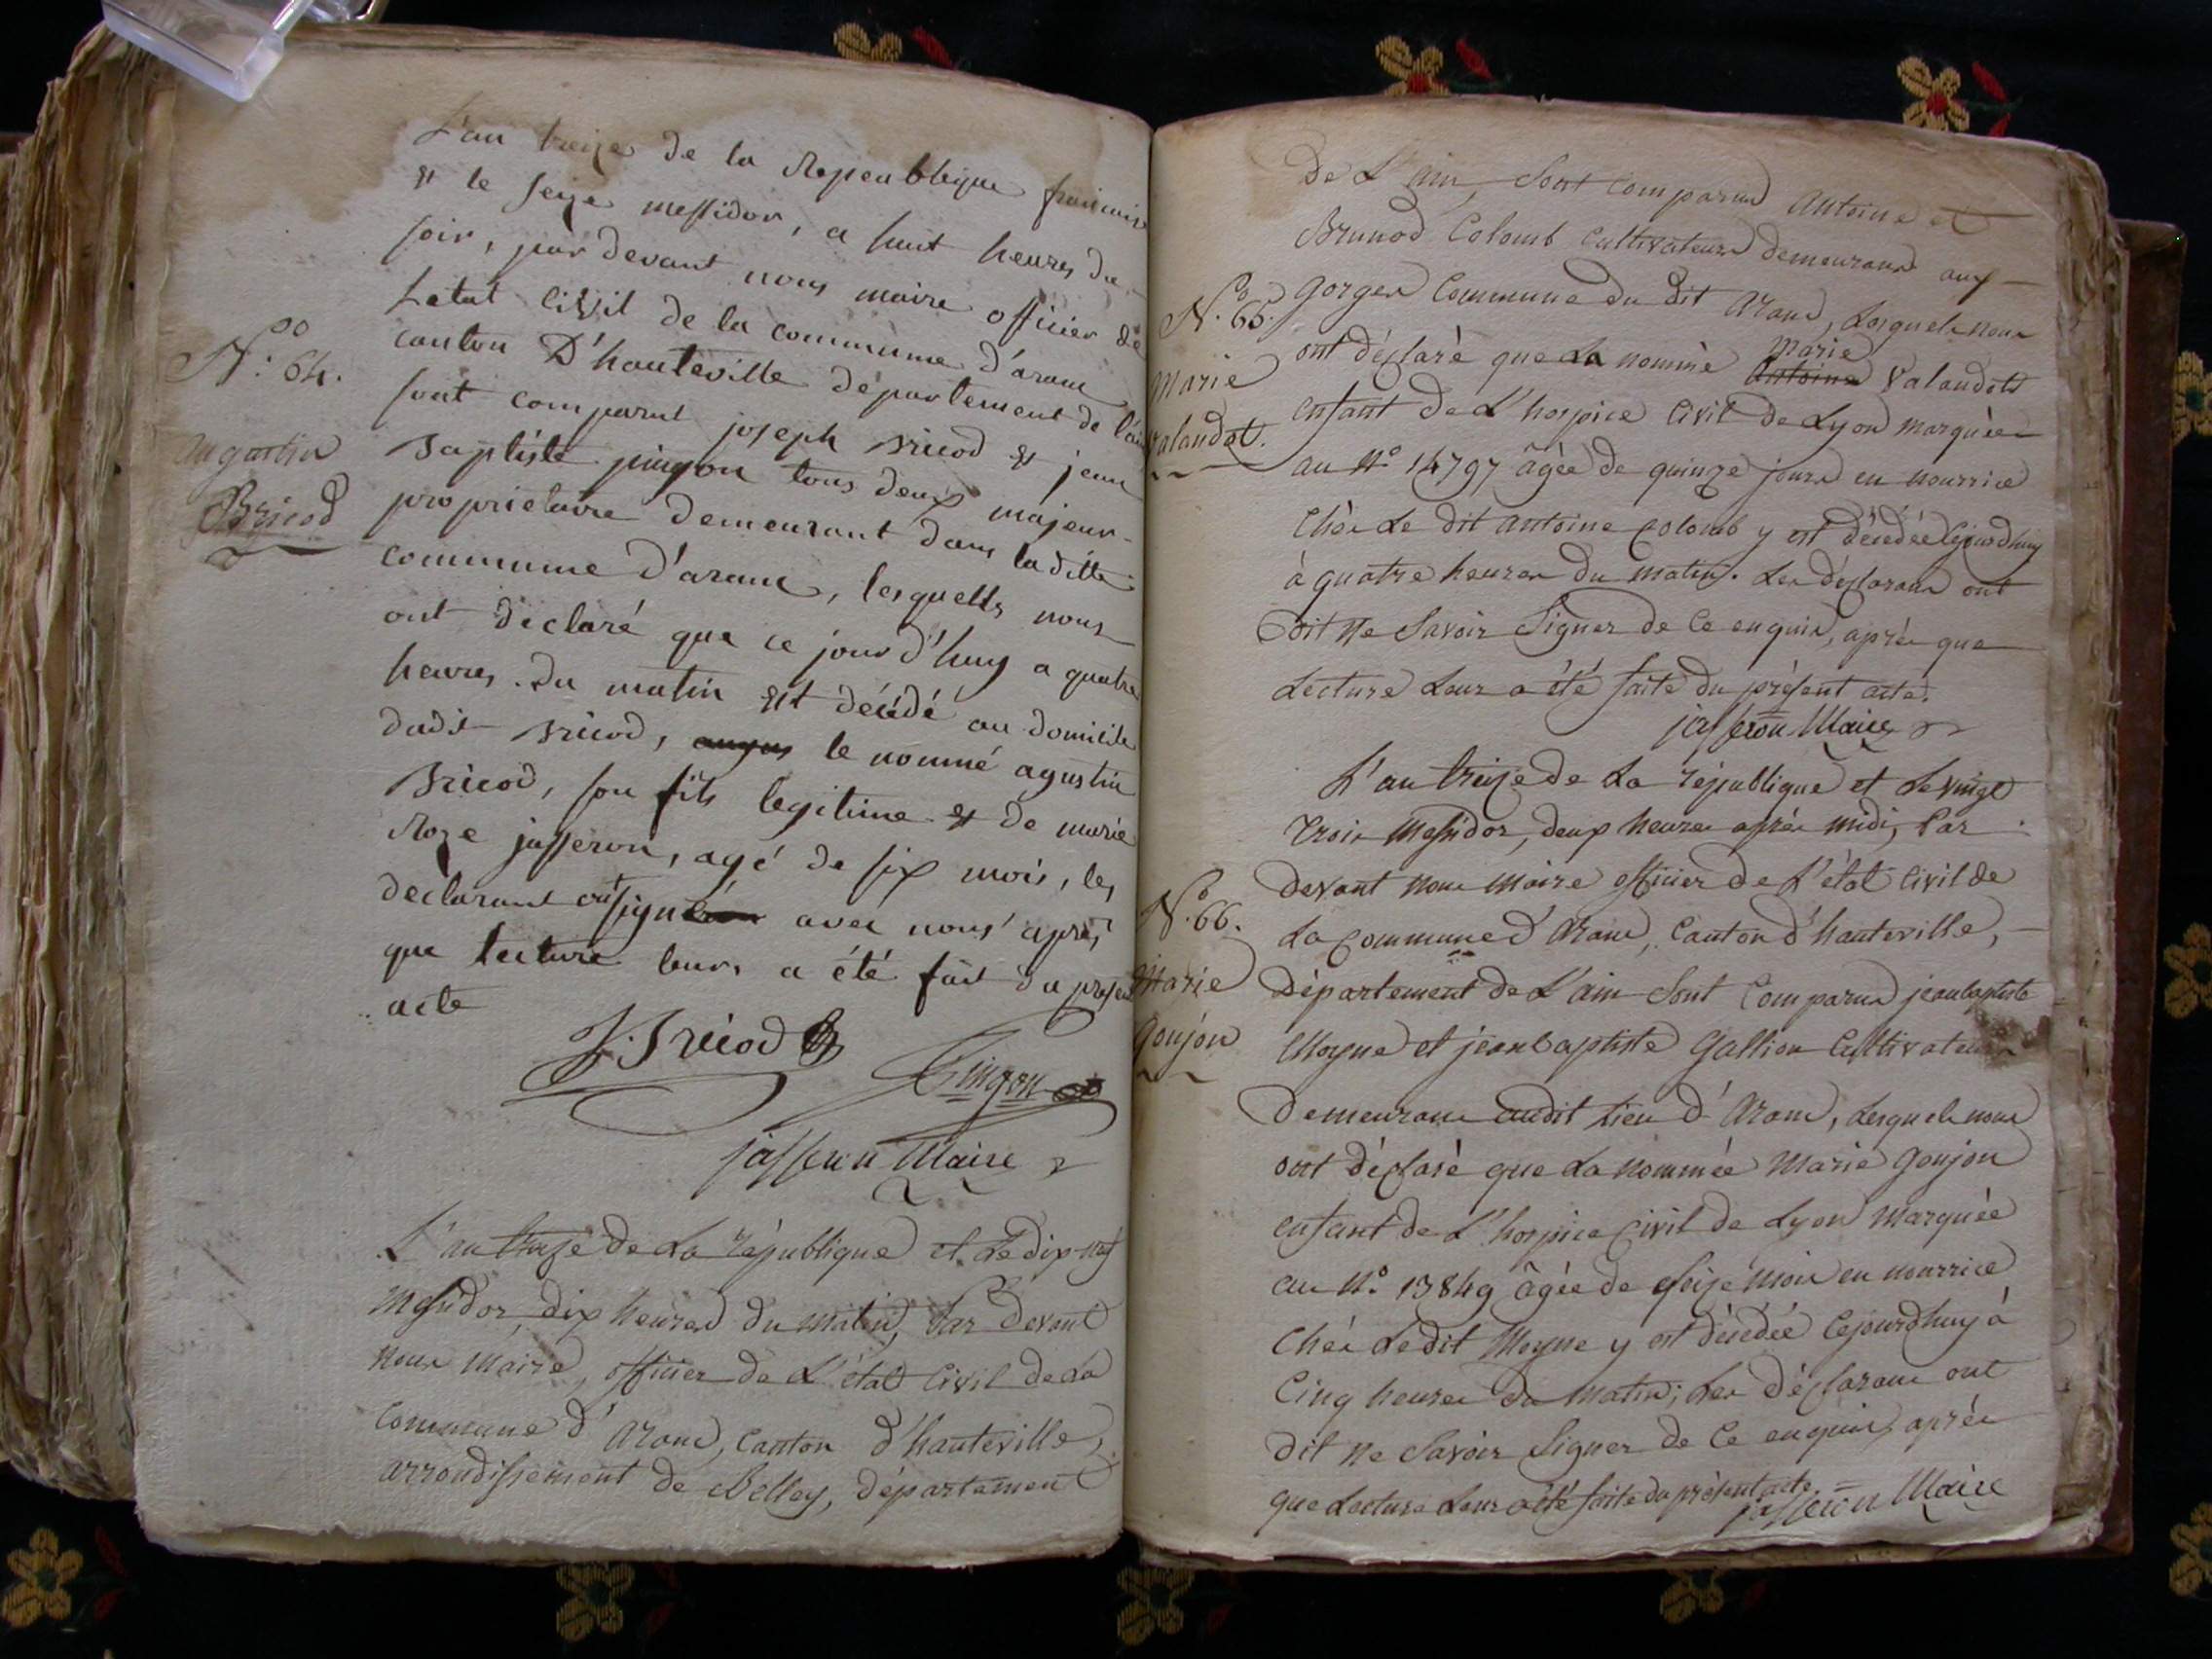 L'an treize de la Republique francaise
et le seize messidor, a huit heures du
soir, par devant nous maire officier de
letat civil de la commune d'aranc
canton D'hauteville departement de l'ain
sont comparut joseph Bricod et jean
Baptiste pingon tous deux majeur
proprietaire demeurant dans la ditte
commune d'aranc, lesquells nous
ont declaré que ce jourd'huy a quatre
heures du matin est décédé au domicile
dudit Bricod, le nommé agustin
Bricod, son fils legitime et de marie
Roze jasseron, agé de six mois, les
declarant ont signé avec nous après
que lecture leurs a été fait du present
acte
N.º 64.
augustin
Bricod
J. Bricod
Pingon
jasseron Maire
L'an treize de La république et Le dix neuf
Messidor, dix heures du matin, Par devant
nous Maire, officier de L'état Civil de La
Commune d'Aranc, Canton d'hauteville,
arrondissement de Belley, département
de L'ain, Sont Comparus Antoine et
Brunod Colomb Cultivateurs demeurans aux
gorges Commune du dit Aranc, Lesquels nous
ont déclaré que La nommée Antoine Marie Valandot
enfant de L'hospice Civil de Lyon marquée
au N.º 14797 âgée de quinze jours en nourrice
Chès Le dit Antoine Colomb y est décédée Cejourdhuy
à quatre heures du matin. Les déclarans ont
dit Ne Savoir Signer de Ce enquis, après que
Lecture Leur a été faite du présent acte.
jasseron Maire
N.º 65.
Marie
Valandot.
L'an treize de La république et Le vingt
trois Messidor, deux heures après midi, Par
devant nous Maire officier de L'état Civil de
La Commune d'Aranc, Canton d'hauteville,
Département de L'ain Sont Comparus jean baptiste
Moyne et jean baptiste Gallion Cultivateurs
Demeurans audit Lieu d'Aranc, Lesquels nous
ont déclaré que La nommée Marie Goujon
enfant de L'hospice Civil de Lyon Marquée
au N.º 13849 âgée de seize mois en nourrice
Chès Ledit Moyne y est décédée Cejourdhuy à
Cinq heures du matin; Les déclarans ont
dit Ne Savoir Signer de Ce enquis, après
que Lecture Leur a été faite du présent acte.
jasseron Maire
N.º 66.
Marie
Goujon